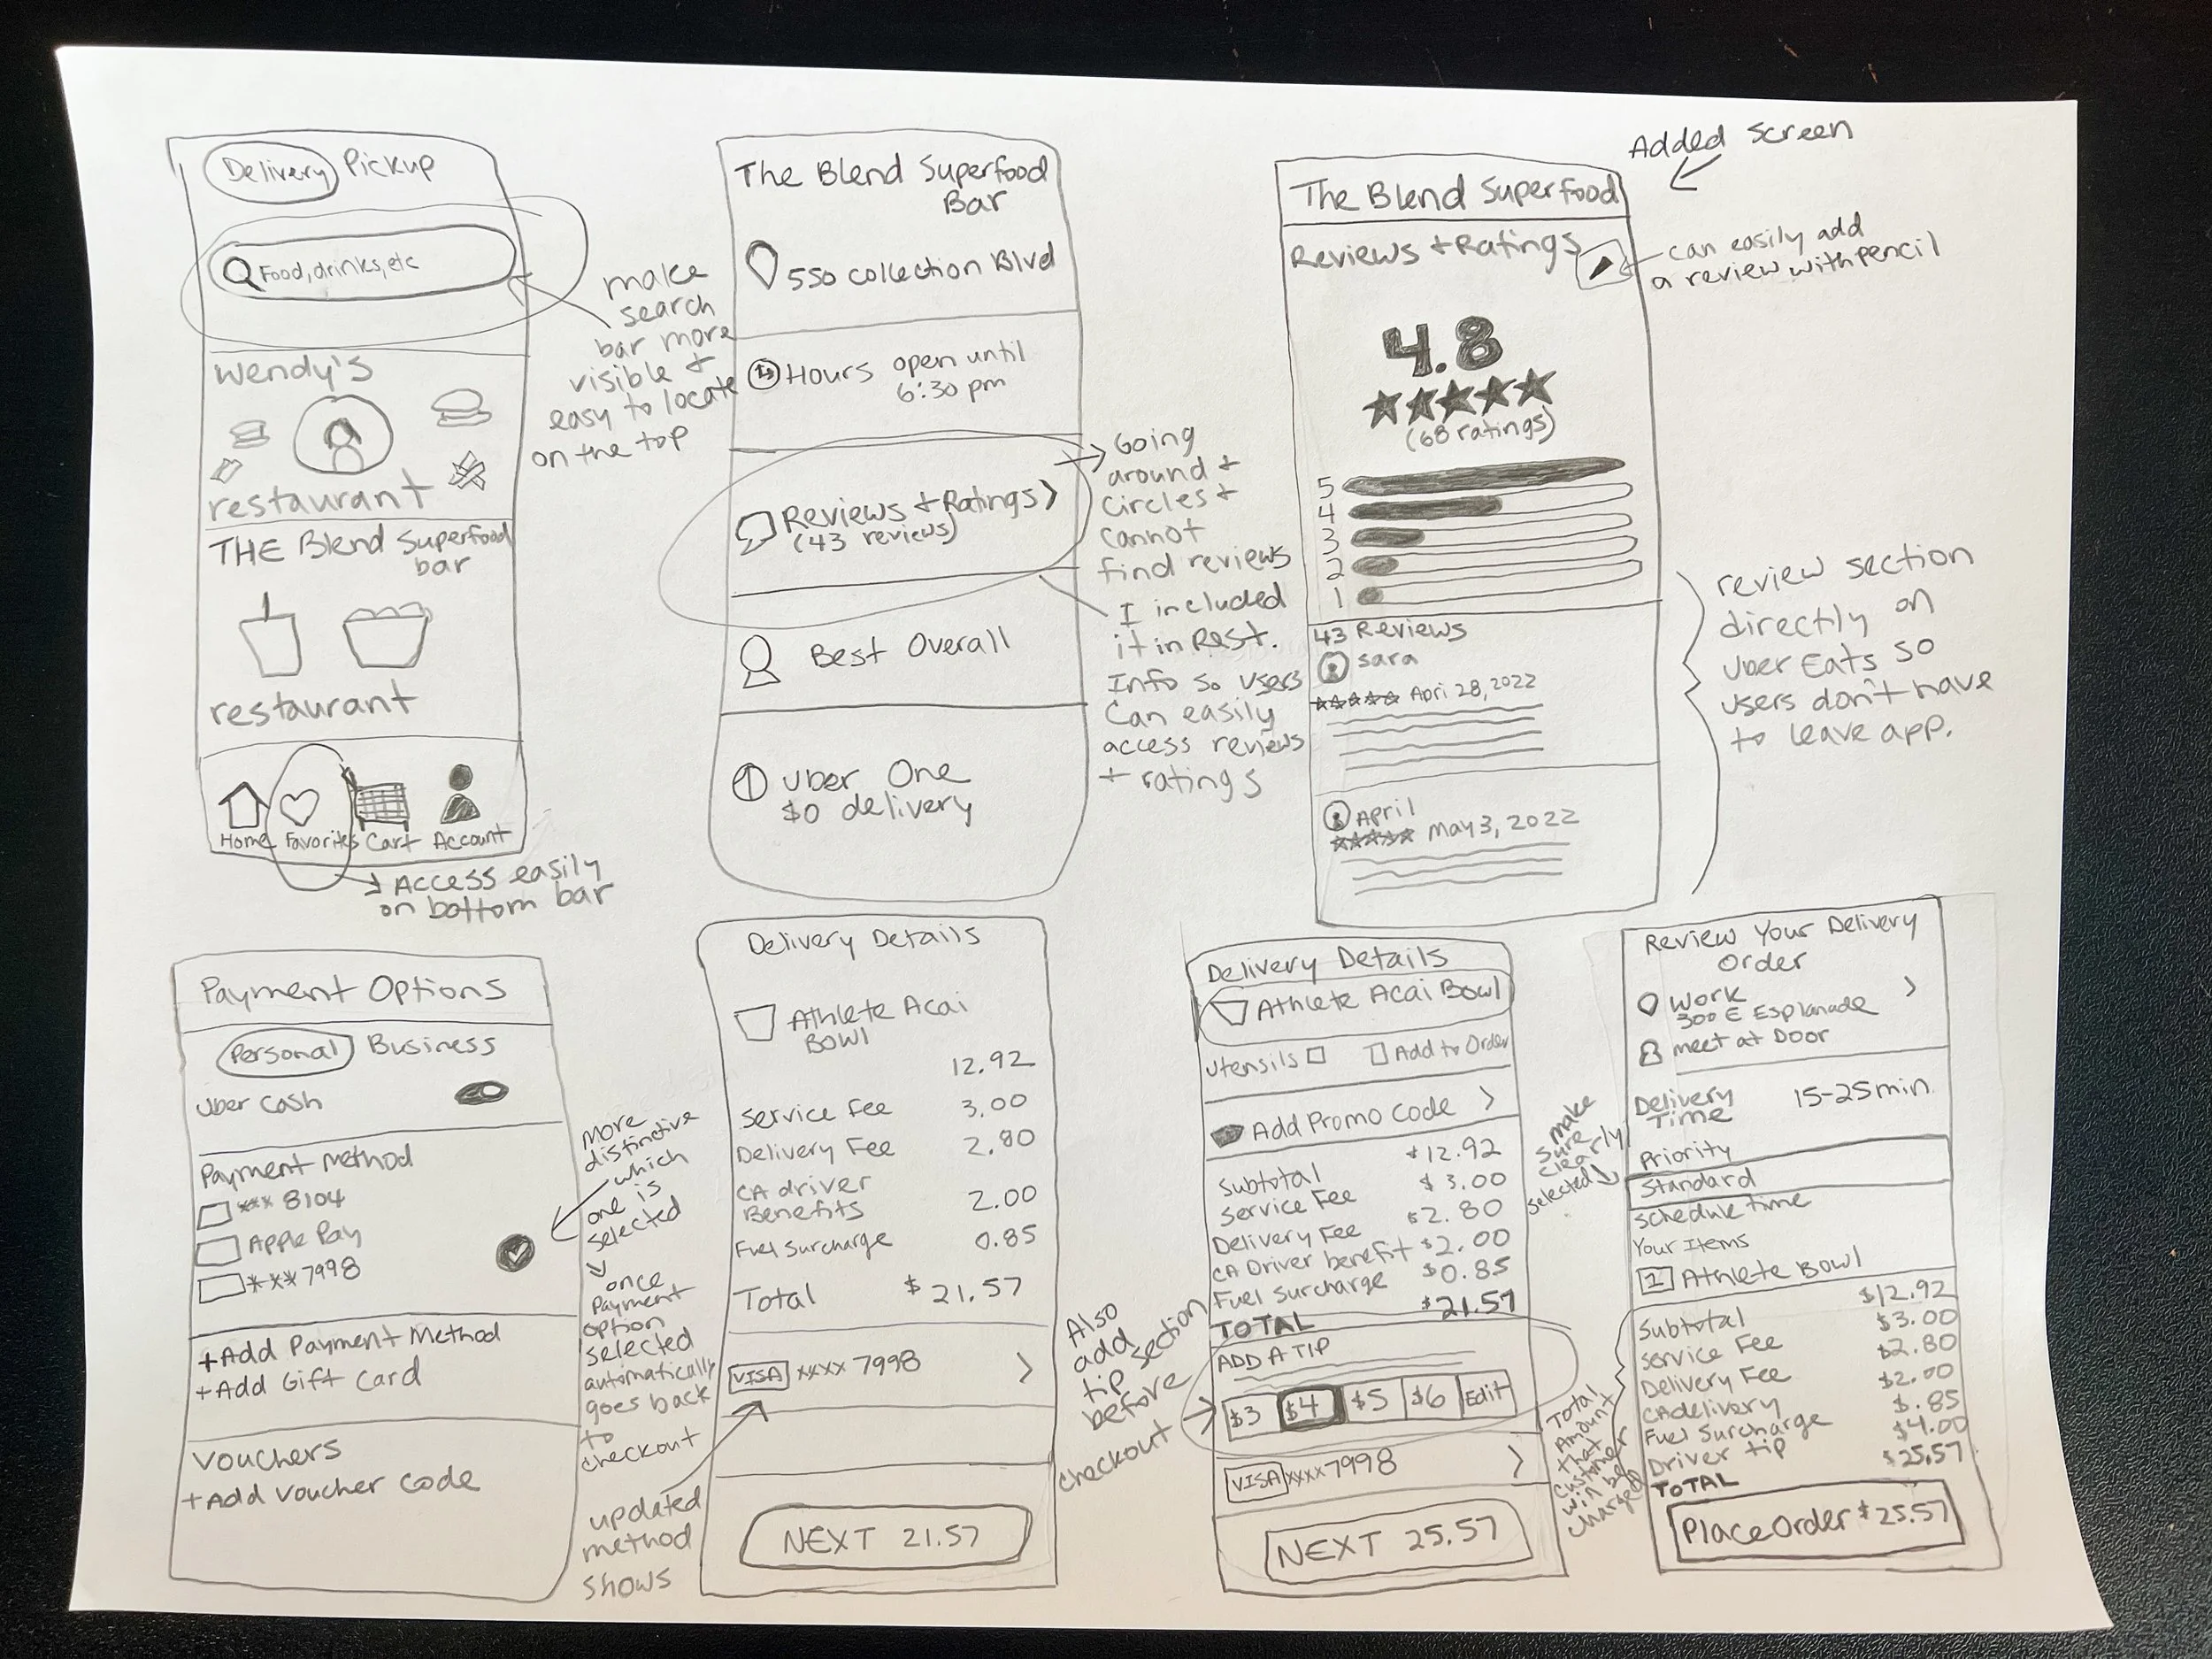 Delivery Pickup
Food, drinks, etc
make
search
bar more
visible +
easy to locate
on the top
Wendy's
restaurant
THE Blend Superfood
bar
restaurant
Home Favorites Cart Account
Access easily
on bottom bar
The Blend Superfood
Bar
550 collection Blvd
Hours open until
6:30 pm
Reviews + Ratings >
(43 reviews)
Best Overall
Uber One
$0 delivery
Going
around +
circles +
cannot
find reviews
I included
it in Rest.
Info so users
can easily
access reviews
+ ratings
Added Screen
The Blend Superfood
Reviews + Ratings
can easily add
a review with pencil
4.8
(68 ratings)
5
4
3
2
1
43 Reviews
sara
Apri 28, 2022
April
May 3, 2022
review section
directly on
Uber Eats so
users don't have
to leave app.
Payment Options
Personal Business
Uber Cash
Payment Method
*** 8104
Apple Pay
*** 7998
+Add Payment Method
+Add Gift Card
Vouchers
+Add Voucher Code
More
distinctive
which
one is
selected
once
Payment
option
selected
automatically
goes back
to
checkout
updated
method
shows
Delivery Details
Athlete Acai
Bowl
12.92
Service Fee 3.00
Delivery Fee 2.80
CA driver
Benefits 2.00
Fuel Surcharge 0.85
Total $21.57
VISA xxxx 7998 >
NEXT 21.57
Also
add
tip section
before
checkout
Delivery Details
Athlete Acai Bowl
Utensils Add to Order
Add Promo Code >
Subtotal $12.92
Service Fee $3.00
Delivery Fee $2.80
CA Driver benefit $2.00
Fuel Surcharge $0.85
TOTAL $21.57
ADD A TIP
$3 $4 $5 $6 Edit
VISA xxxx 7998 >
NEXT 25.57
make
sure
clearly
selected
Total
Amount
that
customer
will be
charged
Review Your Delivery
Order
Work >
300 E Esplanade
meet at Door
Delivery
Time 15-25 min.
Priority
Standard
Schedule time
Your Items
1 Athlete Bowl
Subtotal $12.92
Service Fee $3.00
Delivery Fee $2.80
CA delivery $2.00
Fuel Surcharge $.85
Driver tip $4.00
TOTAL $25.57
Place Order $25.57